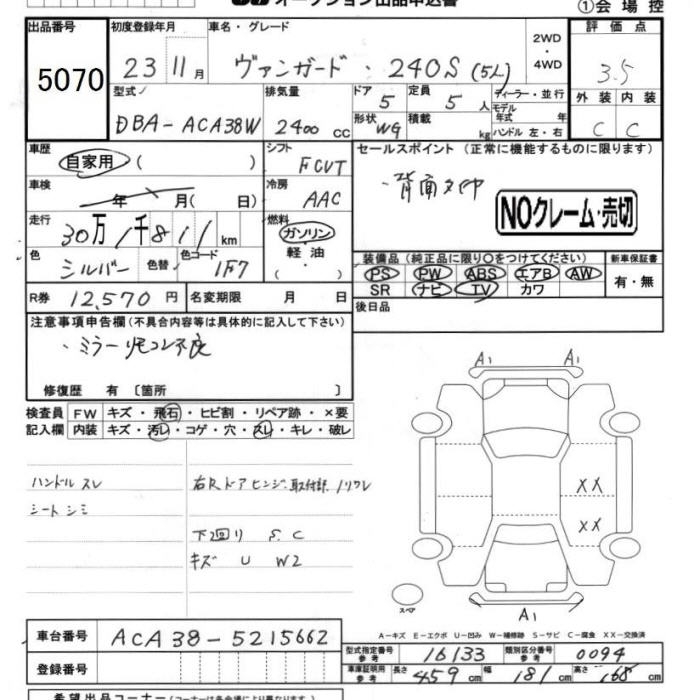 オークション出品申込書
①会場控
出品番号 5070
初度登録年月 23 11月
車名・グレード ヴァンガード・240S (5人)
2WD・4WD
評価点 3.5
外装 C 内装 C
型式 DBA-ACA38W
排気量 2400 cc
ドア 5
定員 5人
ディーラー・並行
形状 WG
積載 kg
モデル年式 年
ハンドル 左・右
車歴 自家用 ( )
シフト FCVT
セールスポイント (正常に機能するものに限ります)
・背面タイヤ
NOクレーム・売切
車検 年 月( 日)
冷房 AAC
走行 30万1千811km
燃料 ガソリン・軽油・( )
色 シルバー 色替
色コード 1F7
装備品 (純正品に限り○をつけてください)
PS PW ABS エアB AW
SR ナビ TV カワ
新車保証書 有・無
R券 12,570円
名変期限 月 日
後日品
注意事項申告欄(不具合内容等は具体的に記入して下さい)
・ミラーリモコン不良
修復歴 有 〔箇所 〕
検査員記入欄
FW キズ・飛石・ヒビ割・リペア跡・×要
内装 キズ・汚レ・コゲ・穴・スレ・キレ・破レ
ハンドル スレ
シート シミ
右Rドアヒンジ取付部ワレ
下廻り S. C
キズ U W2
A1 A1
XX
XX
A1
スペア
A-キズ E-エクボ U-凹み W-補修跡 S-サビ C-腐食 XX-交換済
車台番号 ACA38-5215662
登録番号
型式指定番号 参考 16133
類別区分番号 参考 0094
車庫証明用 参考 長さ 459cm 幅 181cm 高さ 168cm
希望出品コーナー